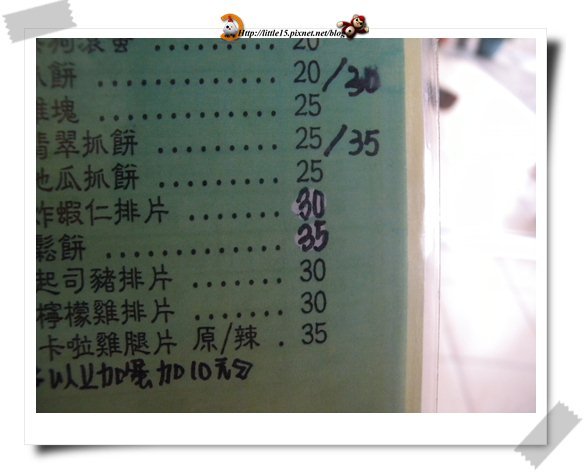 Http://little15.pixnet.net/blog
狗 20
抓餅 ......... 20/30
雞塊 ......... 25
翡翠抓餅 ........ 25/35
地瓜抓餅 ........ 25
炸蝦仁排片 ....... 30
鬆餅 ............. 35
起司豬排片 ....... 30
檸檬雞排片 ....... 30
卡啦雞腿片 原/辣 . 35
以上加蛋加10元